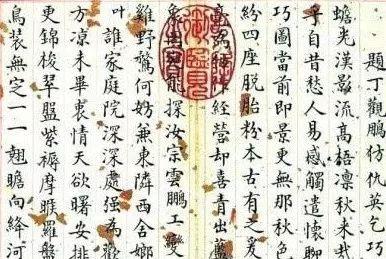 題丁觀鵬仿仇英乞巧
蟾光漢影流高梧凛秋未
乎自昔愁人易感觸遣懷聊
巧圖當前即景更無那秋色
紛四座脫胎粉本古有之爰
毫為作經營却喜青出藍
探汝宗雲鵬工雙
雞野鶩何妨兼東隣西舍
叶誰家庭院深深處强為歡
方凉未畢衷情天欲曙安排
更錦梭翠紫褥摩睺羅盤
鳥裝無定一一翹瞻向絳河